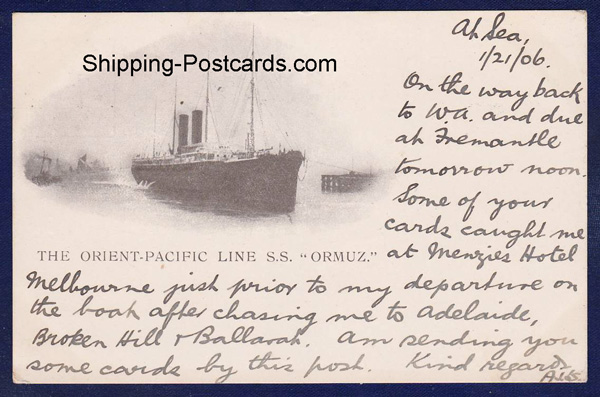 At Sea,
1/21/06.
Shipping-Postcards.com
On the way back
to W.A. and due
at Fremantle
tomorrow noon.
Some of your
cards caught me
THE ORIENT-PACIFIC LINE S.S. "ORMUZ."
at Menzies Hotel
Melbourne just prior to my departure on
the boat after chasing me to Adelaide,
Broken Hill & Ballarat. Am sending you
some cards by this post. Kind regards